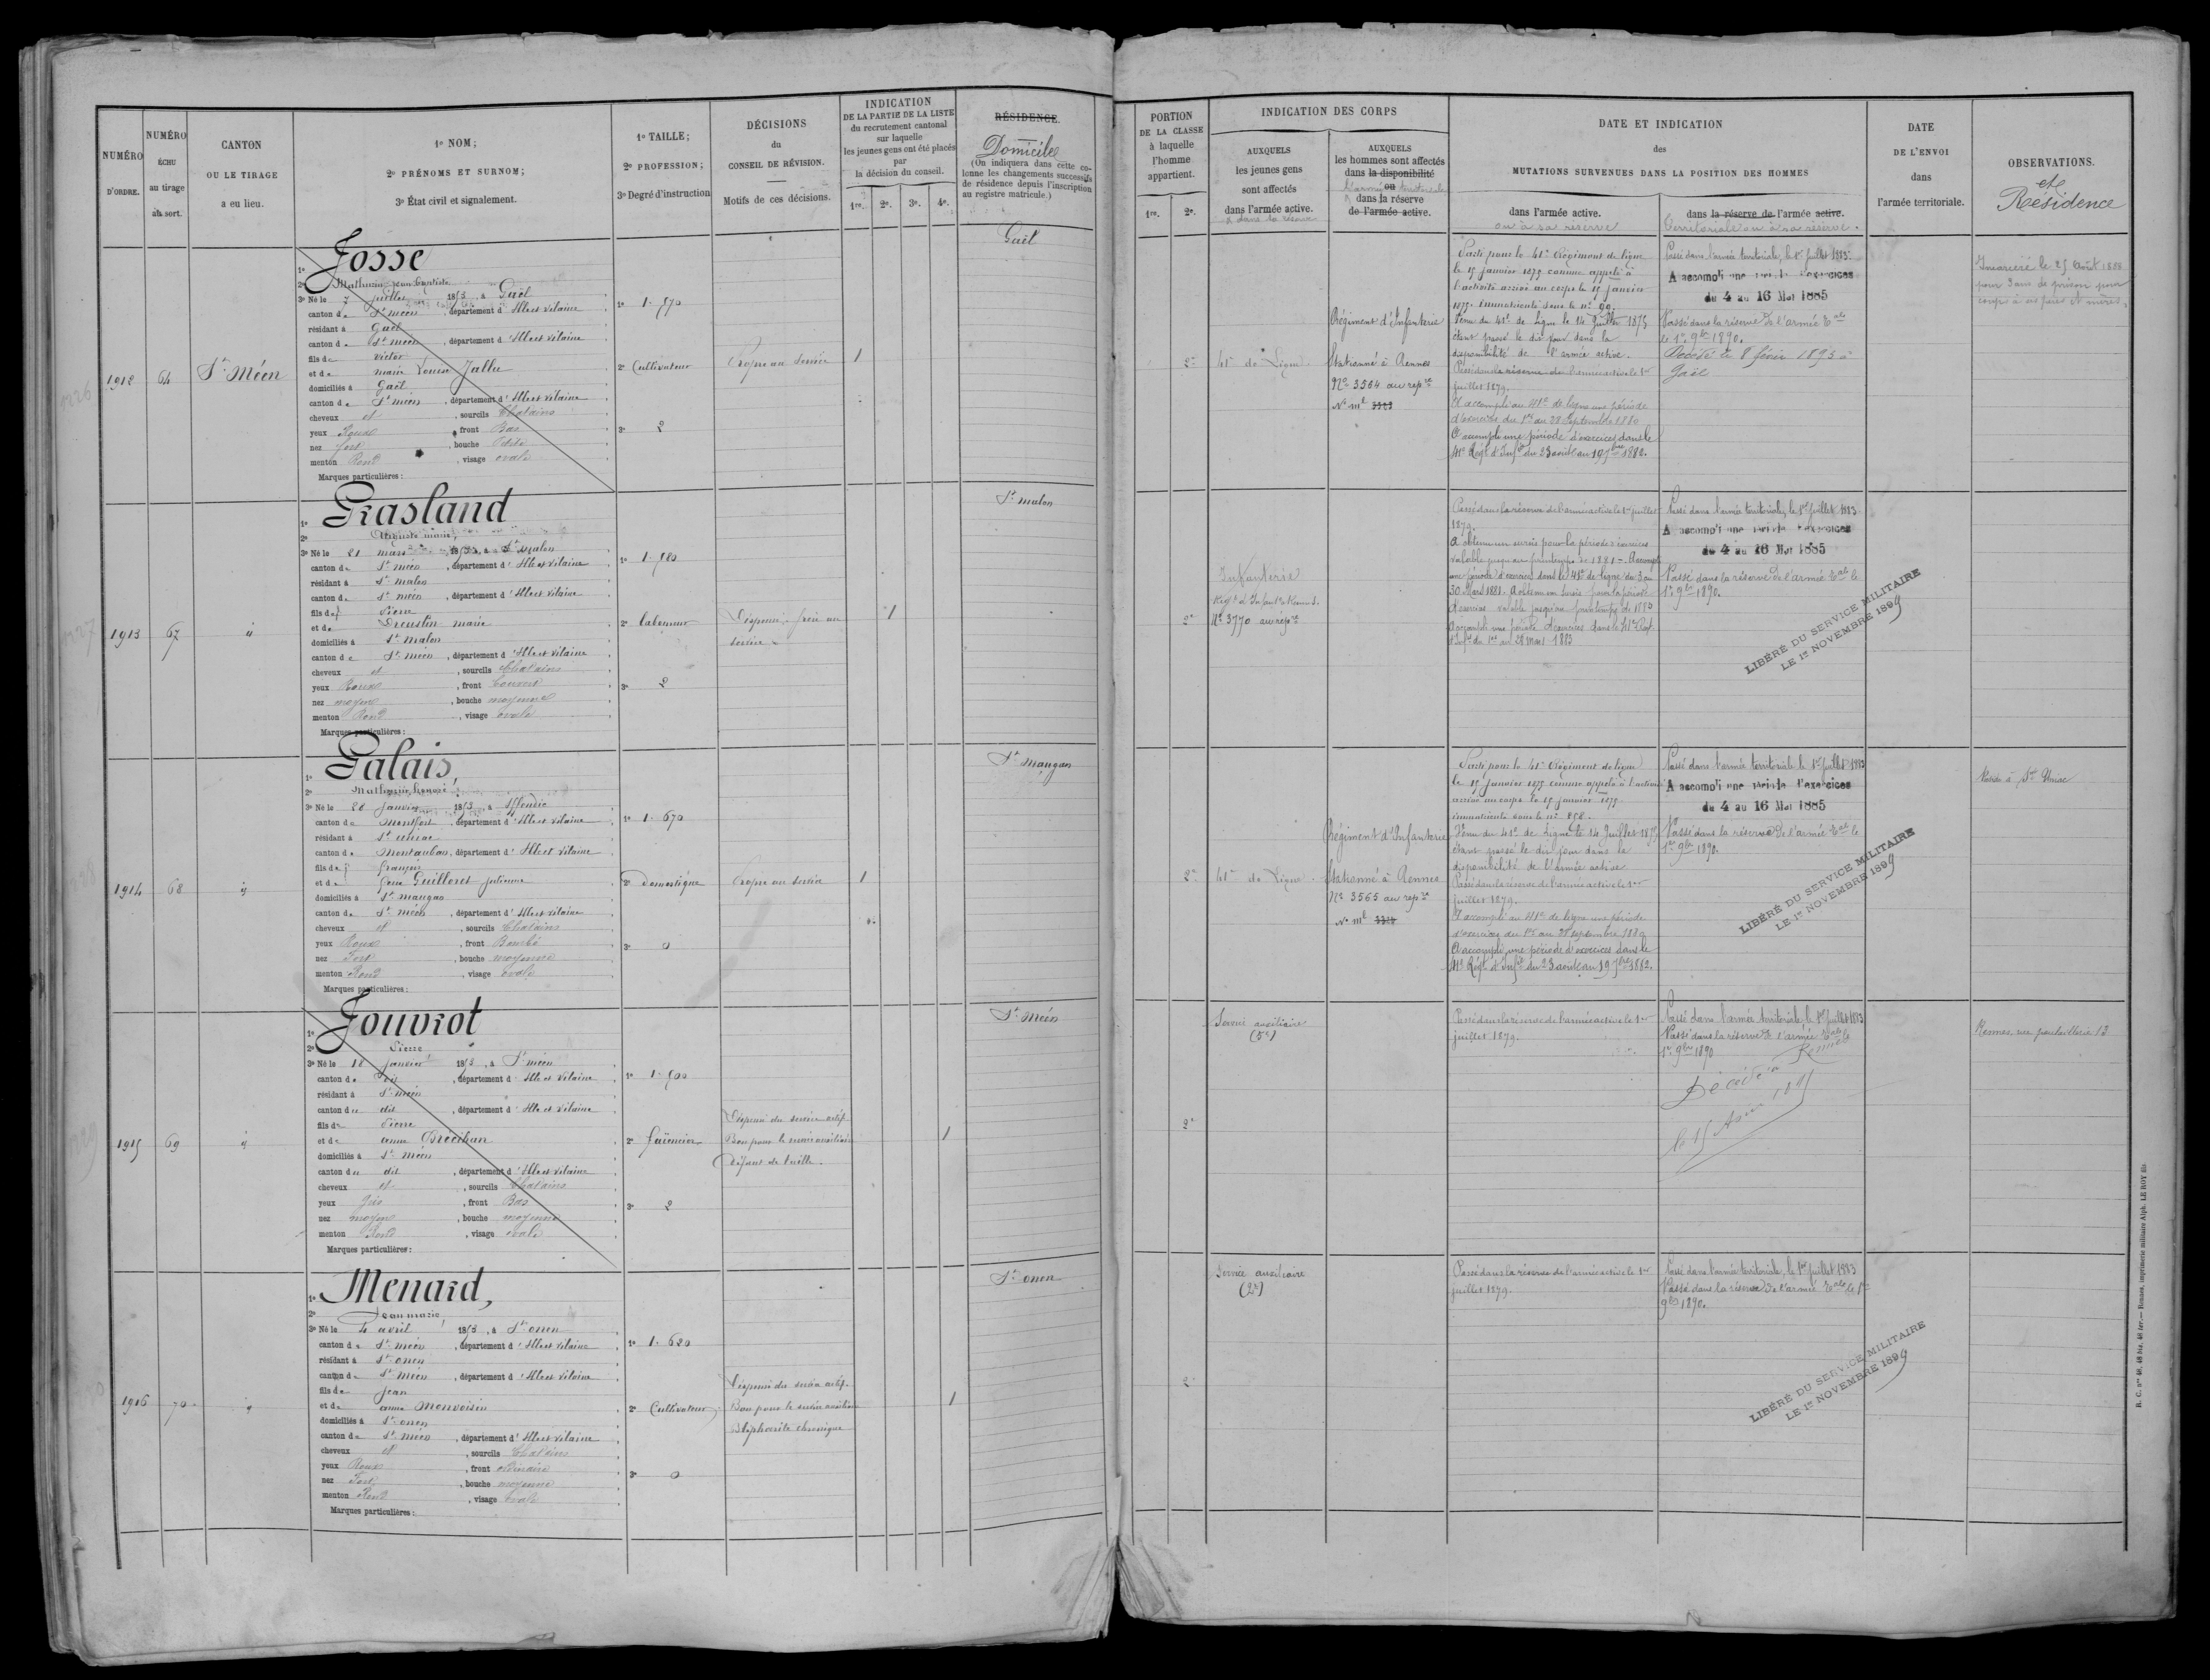 NUMÉRO
D'ORDRE.
NUMÉRO
ÉCHU
au tirage
au sort.
CANTON
OU LE TIRAGE
a eu lieu.
1º NOM;
2º PRÉNOMS ET SURNOM;
3º État civil et signalement.
1º TAILLE;
2º PROFESSION;
3º Degré d'instruction
DÉCISIONS
du
CONSEIL DE RÉVISION.
Motifs de ces décisions.
INDICATION
DE LA PARTIE DE LA LISTE
du recrutement cantonal
sur laquelle
les jeunes gens ont été placés
par
la décision du conseil.
1re. 2e. 3e. 4e.
RÉSIDENCE.
Domicile
(On indiquera dans cette co-
lonne les changements successifs
de résidence depuis l'inscription
au registre matricule.)
1912
64
St Méen
1º Josse
2º Mathurin Jean Baptiste
3º Né le 7 juillet 1853, à Gaël
canton de St méen, département d'Ille et Vilaine
résidant à Gaël
canton de St méen, département d'Ille et Vilaine
fils de victor
et de marie Louise Jallu
domiciliés à Gaël
canton de St méen, département d'Ille et Vilaine
cheveux et, sourcils Chatains
yeux Roux, front Bas
nez fort, bouche Petite
menton Rond, visage ovale
Marques particulières:
1º 1.570
2º Cultivateur
3º 2
Propre au service
1
Gaël
1913
67
"
1º Grasland
2º Auguste marie
3º Né le 21 mars 1853, à St malon
canton de St méen, département d'Ille et Vilaine
résidant à St malon
canton de St méen, département d'Ille et Vilaine
fils de Pierre
et de Dreuslin marie
domiciliés à St malon
canton de St méen, département d'Ille et Vilaine
cheveux et, sourcils Chatains
yeux Roux, front Couvert
nez moyen, bouche moyenne
menton Rond, visage ovale
Marques particulières:
1º 1.580
2º laboureur
3º 2
Dispensé, frère au
service
1
St malon
1914
68
"
1º Galais,
2º Mathurin
3º Né le 28 janvier 1853, à Iffendic
canton de Montfort, département d'Ille et Vilaine
résidant à St uniac
canton de Montauban, département d'Ille et Vilaine
fils de françois
et de Guilloret julienne
domiciliés à St maugan
canton de St méen, département d'Ille et Vilaine
cheveux et, sourcils Chatains
yeux Roux, front Bombé
nez Fort, bouche moyenne
menton Rond, visage ovale
Marques particulières:
1º 1.670
2º Domestique
3º 0
Propre au service
1
St maugan
1915
69
"
1º Jouvrot
2º Pierre
3º Né le 18 janvier 1853, à St méen
canton du dit, département d'Ille et Vilaine
résidant à St méen
canton du dit, département d'Ille et Vilaine
fils de Pierre
et de anne Brécihan
domiciliés à St méen
canton du dit, département d'Ille et Vilaine
cheveux et, sourcils Chatains
yeux gris, front Bas
nez moyen, bouche moyenne
menton Rond, visage ovale
Marques particulières:
1º 1.500
2º faïencier
3º 2
Dispensé du service actif
Bon pour le service auxiliaire
Défaut de taille.
1
St Méen
1916
70
"
1º Menard,
2º Jean marie
3º Né le 4 avril 1853, à St onen
canton de St méen, département d'Ille et Vilaine
résidant à St onen
canton de St méen, département d'Ille et Vilaine
fils de jean
et de anne Monvoisin
domiciliés à St onen
canton de St méen, département d'Ille et Vilaine
cheveux et, sourcils Chatains
yeux Roux, front ordinaire
nez Fort, bouche moyenne
menton Rond, visage ovale
Marques particulières:
1º 1.620
2º Cultivateur
3º 0
Dispensé du service actif.
Bon pour le service auxiliaire
Blépharite chronique
1
St onen
PORTION
DE LA CLASSE
à laquelle
l'homme
appartient.
1re. 2e.
INDICATION DES CORPS
AUXQUELS
les jeunes gens
sont affectés
dans l'armée active.
et dans la réserve
AUXQUELS
les hommes sont affectés
dans la disponibilité
ou
l'armée territoriale
dans la réserve
de l'armée active.
DATE ET INDICATION
des
MUTATIONS SURVENUES DANS LA POSITION DES HOMMES
dans l'armée active.
ou à sa réserve
dans la réserve de l'armée active.
Territoriale ou à sa réserve.
DATE
DE L'ENVOI
dans
l'armée territoriale.
OBSERVATIONS.
et
Résidence
2e
41e de Ligne
Régiment d'Infanterie
Stationné à Rennes
No 3564 au repre
No ml 3323
Parti pour le 41e Régiment de ligne
le 15 janvier 1875 comme appelé à
l'activité arrivé au corps le 15 janvier
1875. Immatriculé sous le no 90.
Venu du 41e de Ligne le 14 Juillet 1875
étant passé le dix jour dans la
disponibilité de l'armée active.
Passé dans la réserve de l'armée active le 1er
juillet 1879.
A accompli au 41e de ligne une période
d'exercices du 1er au 28 Septembre 1880
A accompli une période d'exercices dans le
41e Régt d'Infie du 23 août au 19 7bre 1882.
Passé dans l'armée territoriale, le 1er juillet 1883.
A accompli une période d'exercices
du 4 au 16 Mai 1885
Passé dans la réserve de l'armée Tale
le 1er 9bre 1890.
Décédé le 8 février 1895 à
Gaël
Incarcéré le 25 août 1888
pour 3 ans de prison pour
coups à ses père et mère.
2e
Infanterie
Régt d'Infante Rennes.
No 3770 au repre
Passé dans la réserve de l'armée active le 1er juillet
1879.
A obtenu un sursis pour la période d'exercices
valable jusqu'au printemps de 1881 - A accompli
une période d'exercices dans le 41e de ligne du 3 au
30 Mars 1881. A obtenu un sursis pour la période
d'exercices valable jusqu'au printemps de 1883
A accompli une période d'exercices dans le 41e Régt
d'Infie du 1er au 28 mars 1883
Passé dans l'armée territoriale, le 1er juillet 1883
A accompli une période d'exercices
du 4 au 16 Mai 1885
Passé dans la réserve de l'armée Tale le
1er 9bre 1890.
LIBÉRÉ DU SERVICE MILITAIRE
LE 1er NOVEMBRE 1899
2e
41e de Ligne
Régiment d'Infanterie
Stationné à Rennes
No 3565 au repre
No ml
Parti pour le 41e Régiment de ligne
le 15 janvier 1875 comme appelé à l'activité
arrivé au corps le 15 janvier 1875.
immatriculé sous le no 858.
Venu du 41e de Ligne le 14 Juillet 1875
étant passé le dix jour dans la
disponibilité de l'armée active
Passé dans la réserve de l'armée active le 1er
juillet 1879.
A accompli au 41e de ligne une période
d'exercices du 1er au 28 septembre 1880
A accompli une période d'exercices dans le
41e Régt d'Infie du 23 août au 19 7bre 1882.
Passé dans l'armée territoriale le 1er juillet 1883
A accompli une période d'exercices
du 4 au 16 Mai 1885
Passé dans la réserve de l'armée Tale le
1er 9bre 1890.
LIBÉRÉ DU SERVICE MILITAIRE
LE 1er NOVEMBRE 1899
à St Uniac
2e
Service auxiliaire
(5e)
Passé dans la réserve de l'armée active le 1er
juillet 1879.
Passé dans l'armée territoriale, le 1er Juillet 1883
Passé dans la réserve de l'armée Tale le
1er 9bre 1890
Décédé à Rennes
le 15
Rennes, rue poullaillerie 13
2e
Service auxiliaire
(2e)
Passé dans la réserve de l'armée active le 1er
juillet 1879.
Passé dans l'armée territoriale, le 1er juillet 1883
Passé dans la réserve de l'armée Tale le 1er
9bre 1890.
LIBÉRÉ DU SERVICE MILITAIRE
LE 1er NOVEMBRE 1899
R. C. nos 48, 48 bis, 48 ter. — Rennes, imprimerie militaire Alph. LE ROY fils